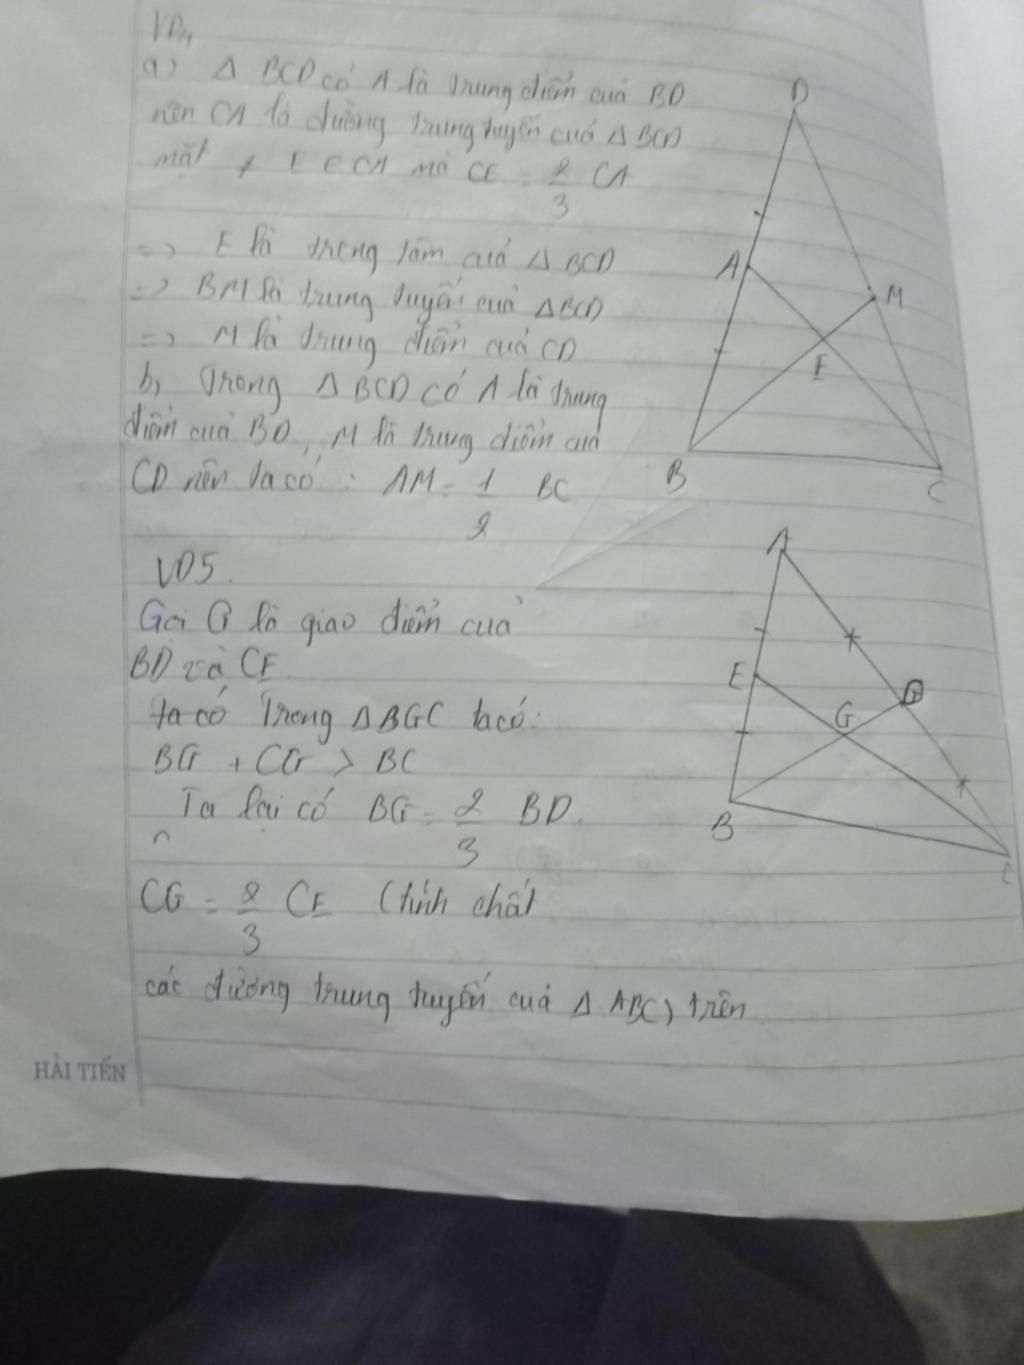 VD4
a) Δ BCD có A là trung điểm của BD
nên CA là đường trung tuyến của Δ BCD
mặt ≠ E ∈ CA mà CE = 2/3 CA
=> E là trọng tâm của Δ BCD
=> BM là trung tuyến của ΔBCD
=> M là trung điểm của CD
b, Trong Δ BCD có A là trung
điểm của BD, M là trung điểm của
CD nên ta có : AM = 1/2 BC
D
A
M
E
B
C
VD5.
Gọi G là giao điểm của
BD và CE.
ta có Trong ΔBGC ta có:
BG + CG > BC
Ta lại có BG = 2/3 BD.
CG = 2/3 CE (tính chất
các đường trung tuyến của Δ ABC) trên
A
E
D
G
B
C
HẢI TIẾN